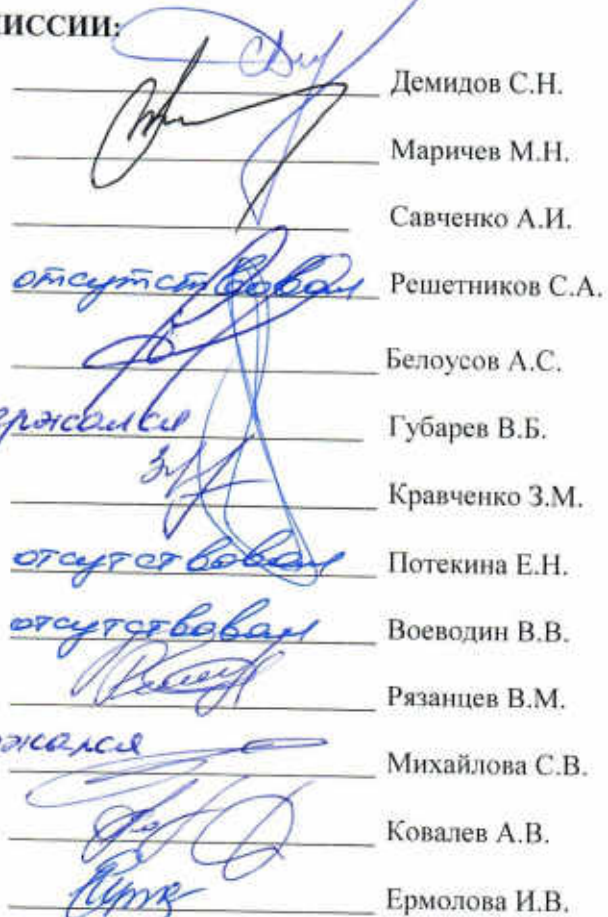 МИССИИ:
Демидов С.Н.
Маричев М.Н.
Савченко А.И.
отсутствовал Решетников С.А.
Белоусов А.С.
ержался Губарев В.Б.
Кравченко З.М.
отсутствовал Потекина Е.Н.
отсутствовал Воеводин В.В.
Рязанцев В.М.
ржался Михайлова С.В.
Ковалев А.В.
Ермолова И.В.